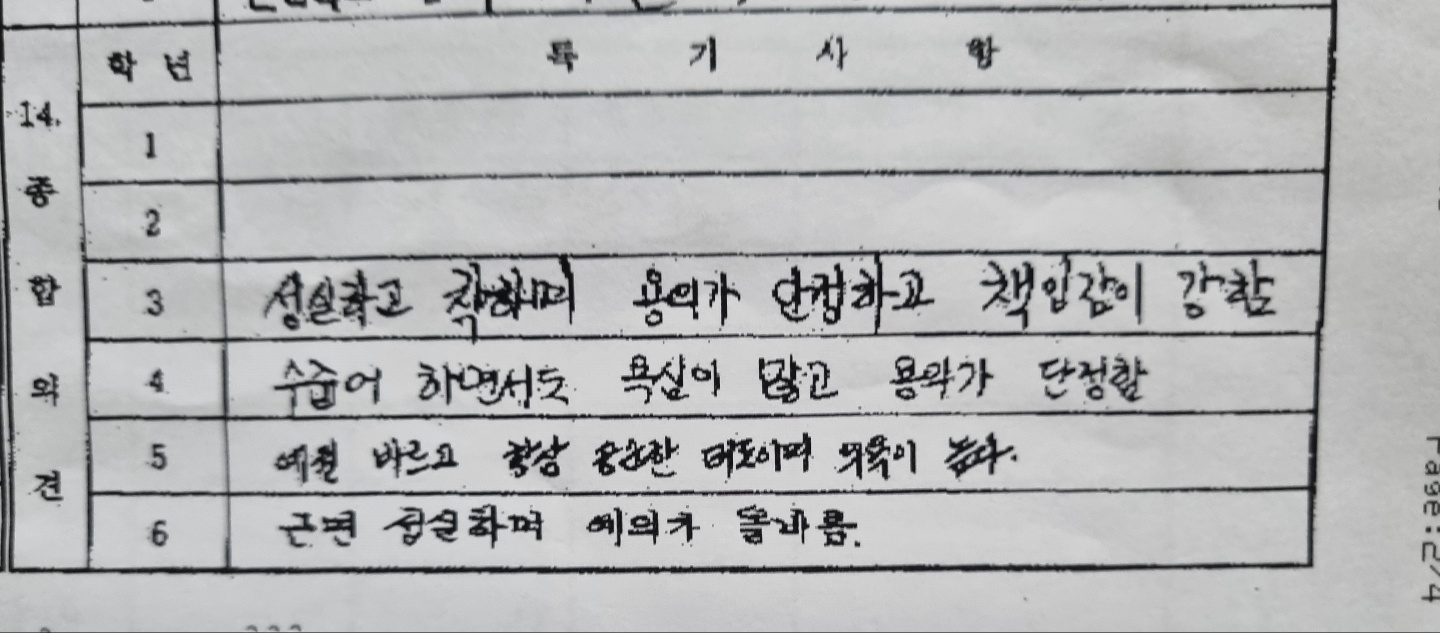 학 년 특 기 사 항
14. 종 합 의 견
1
2
3 성실하고 착하며 용의가 단정하고 책임감이 강함
4 수줍어 하면서도 욕심이 많고 용의가 단정함
5 예절 바르고 항상 공손한 태도이며 의욕이 높다.
6 근면 성실하며 예의가 올바름.
Page:2/4